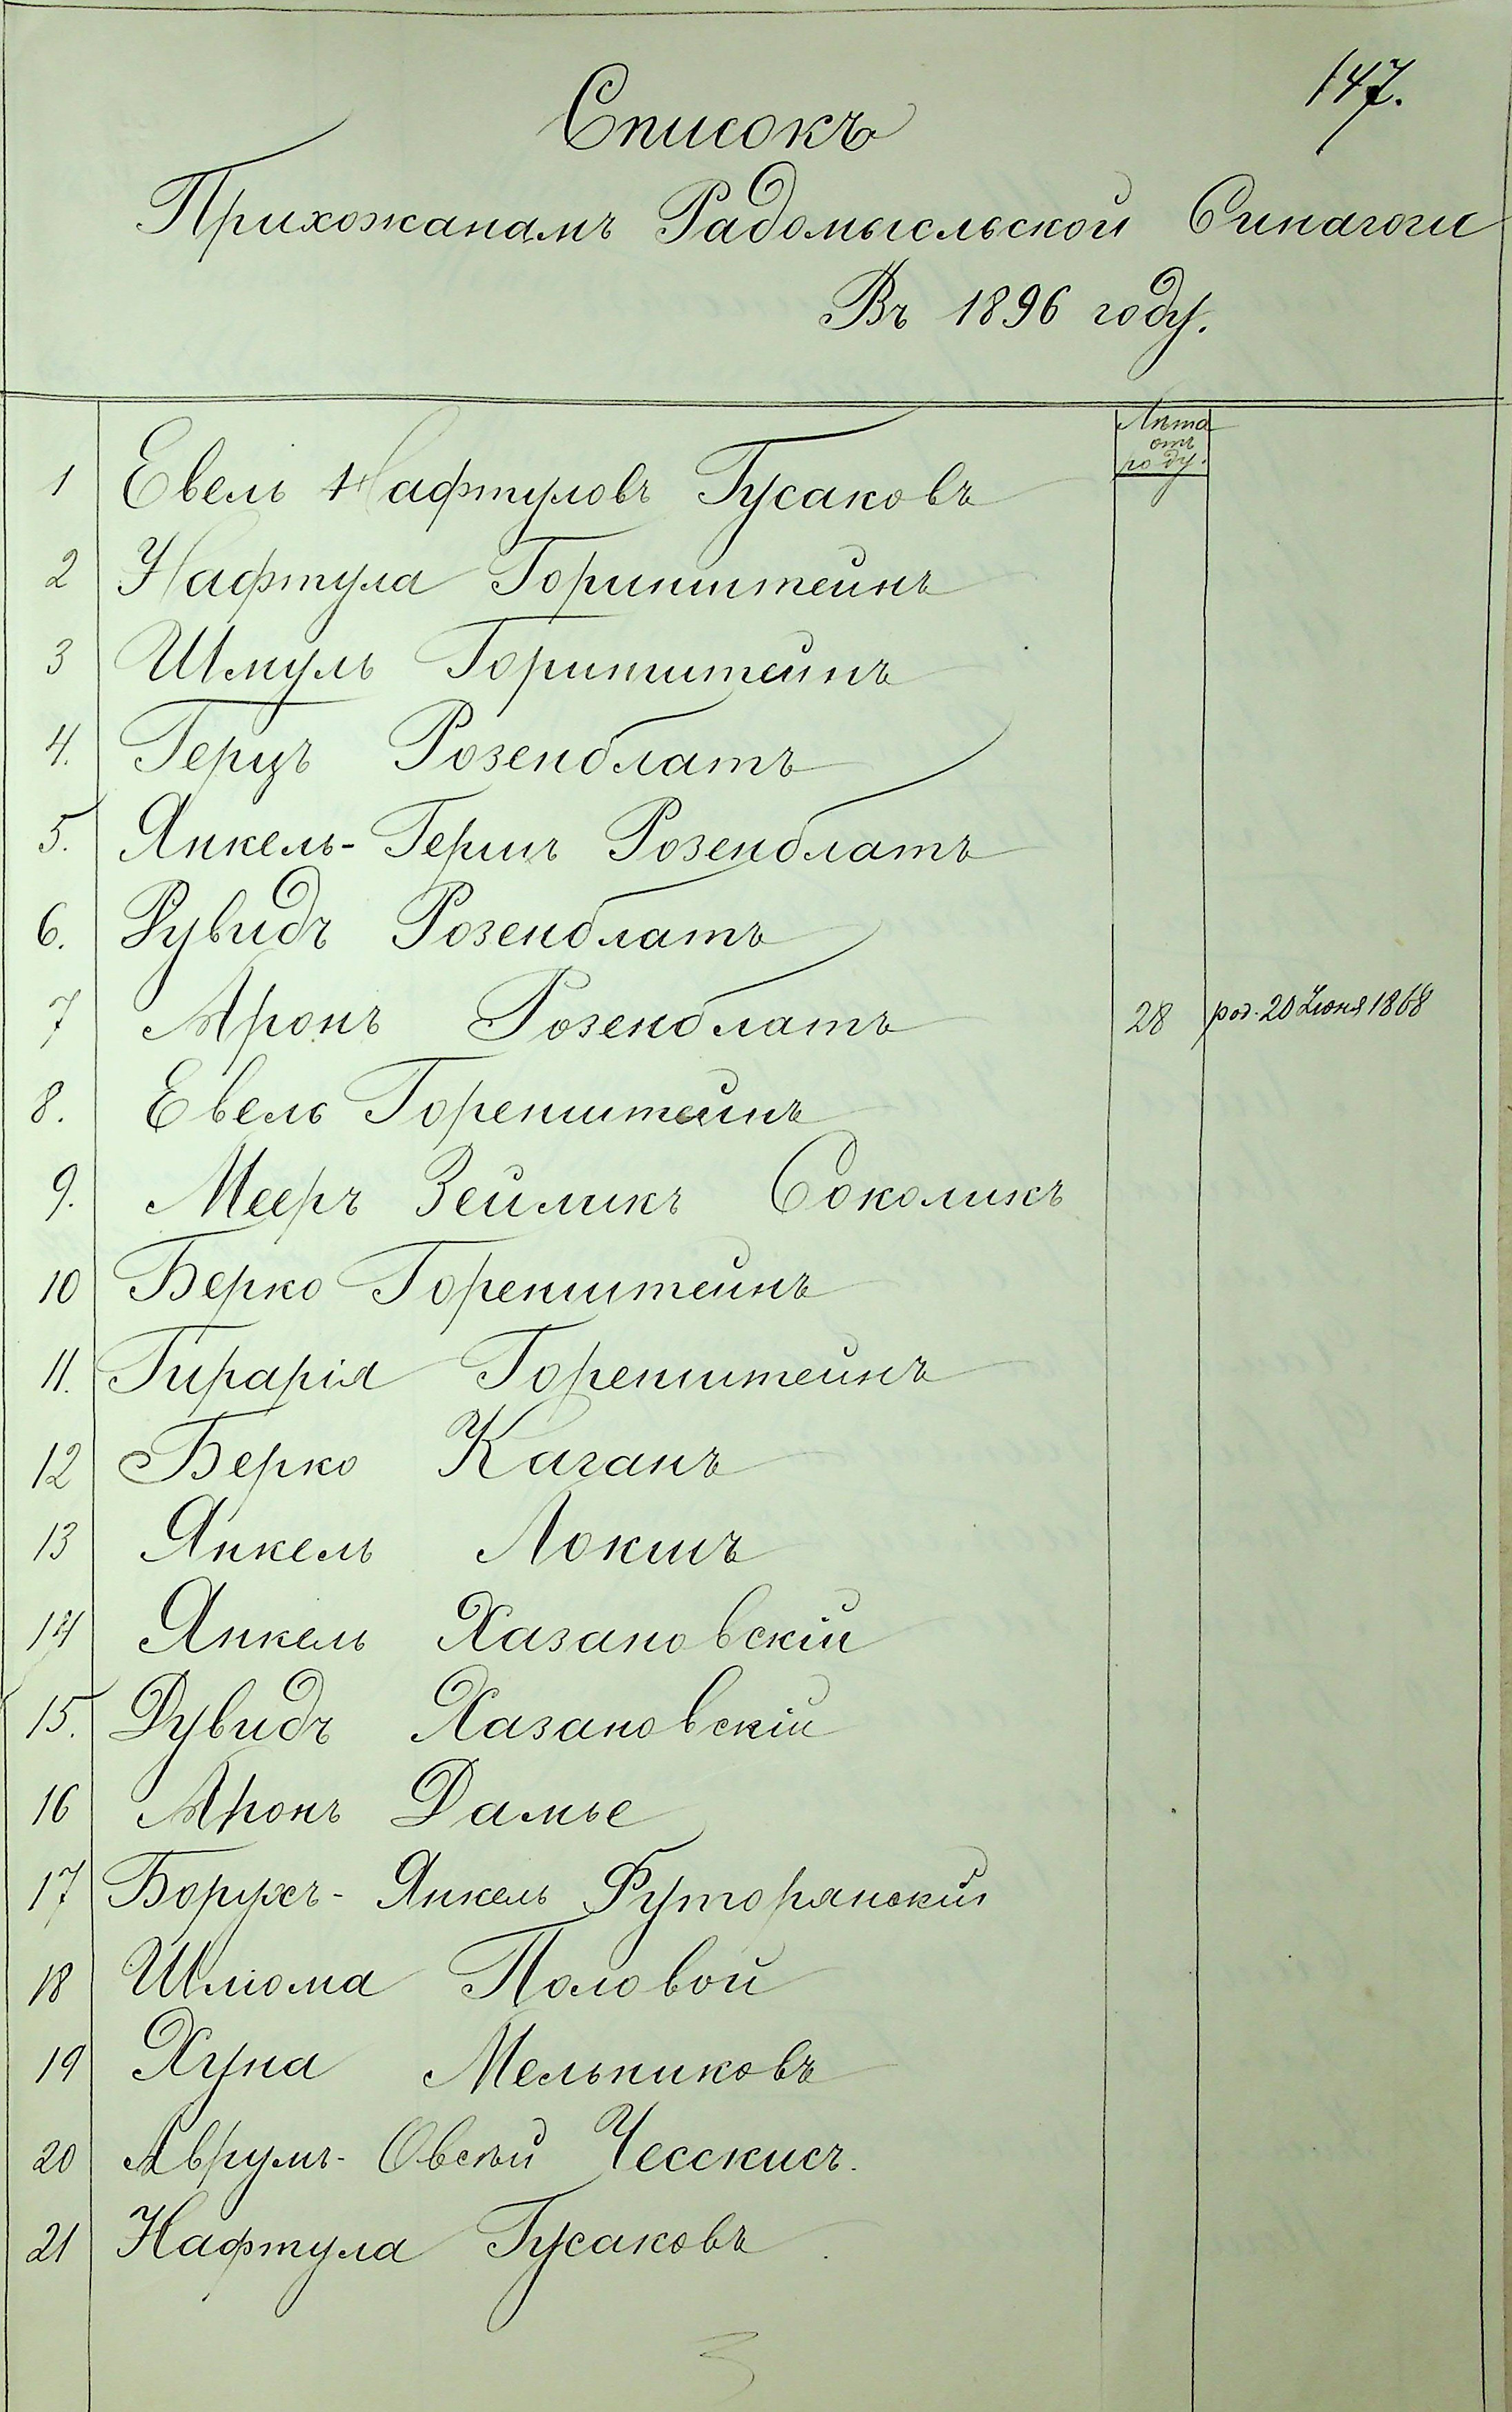 147.
Списокъ
Прихожанамъ Радомысльской Синагоги
Въ 1896 году.
Лѣта
отъ
роду.
1 Евель Нафтуловъ Гусаковъ
2 Нафтула Горинштейнъ
3 Шмуль Горинштейнъ
4. Герцъ Розенблатъ
5. Янкель-Гершъ Розенблатъ
6. Рувидъ Розенблатъ
7 Аронъ Розенблатъ 28 род. 20 Іюня 1868
8. Евель Горенштейнъ
9. Мееръ Зейликъ Соколикъ
10 Берко Горенштейнъ
11. Гирарія Горенштейнъ
12 Берко Каганъ
13 Янкель Локшъ
14 Янкель Хазановскій
15. Дувидъ Хазановскій
16 Аронъ Дамье
17 Борухъ-Янкель Футорянский
18 Шліома Половой
19 Хуна Мельниковъ
20 Аврумъ-Овсѣй Чесскисъ.
21 Нафтула Гусаковъ